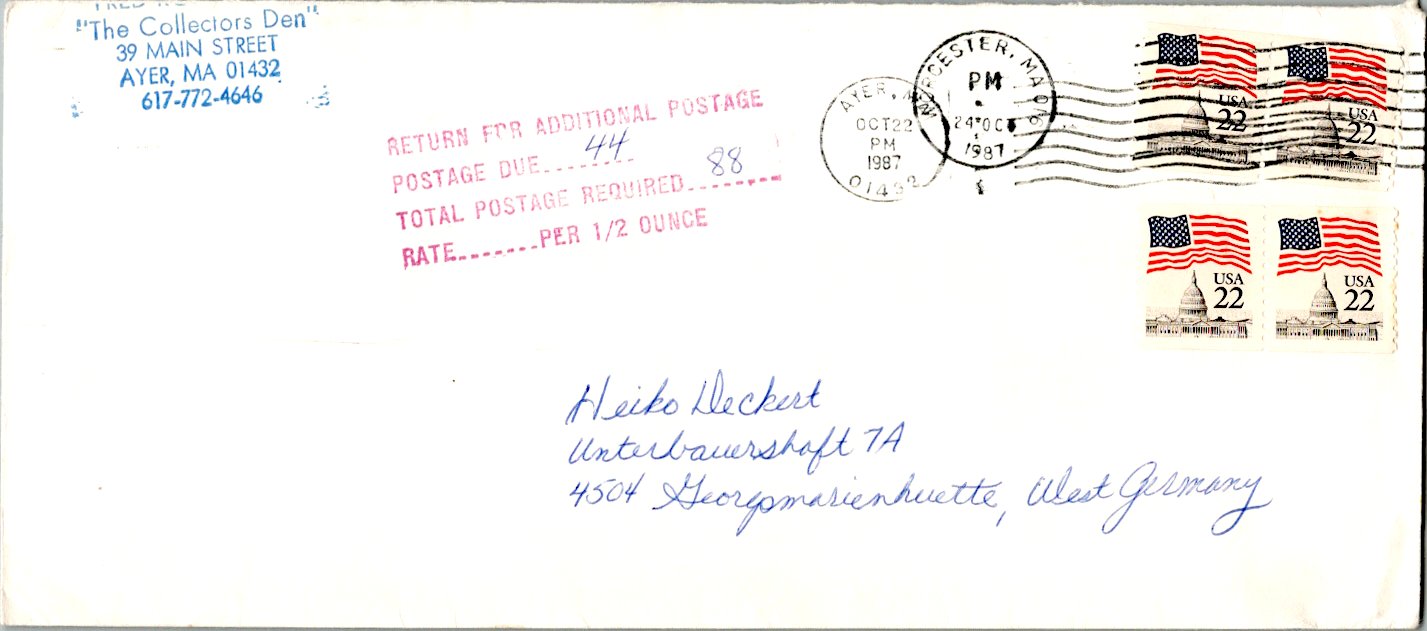 "The Collectors Den"
39 MAIN STREET
AYER, MA 01432
617-772-4646
RETURN FOR ADDITIONAL POSTAGE
POSTAGE DUE.......44
TOTAL POSTAGE REQUIRED.......88
RATE.......PER 1/2 OUNCE
AYER,
OCT 22
PM
1987
01432
WORCESTER, MA 016
PM
24 OCT
1987
USA
22
USA
22
USA
22
USA
22
Heiko Deckert
Unterbauershaft 7A
4504 Georgsmarienhuette, West Germany